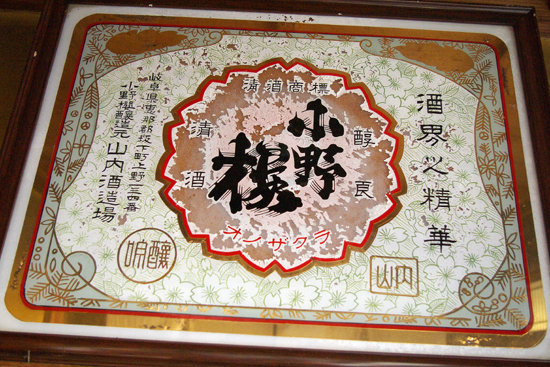 清酒商標
酒界之精華
醇良
小野
櫻
清
酒
オノザクラ
岐阜県恵那郡坂下町上野
小野櫻醸造元 山内酒造場
吟釀
山内